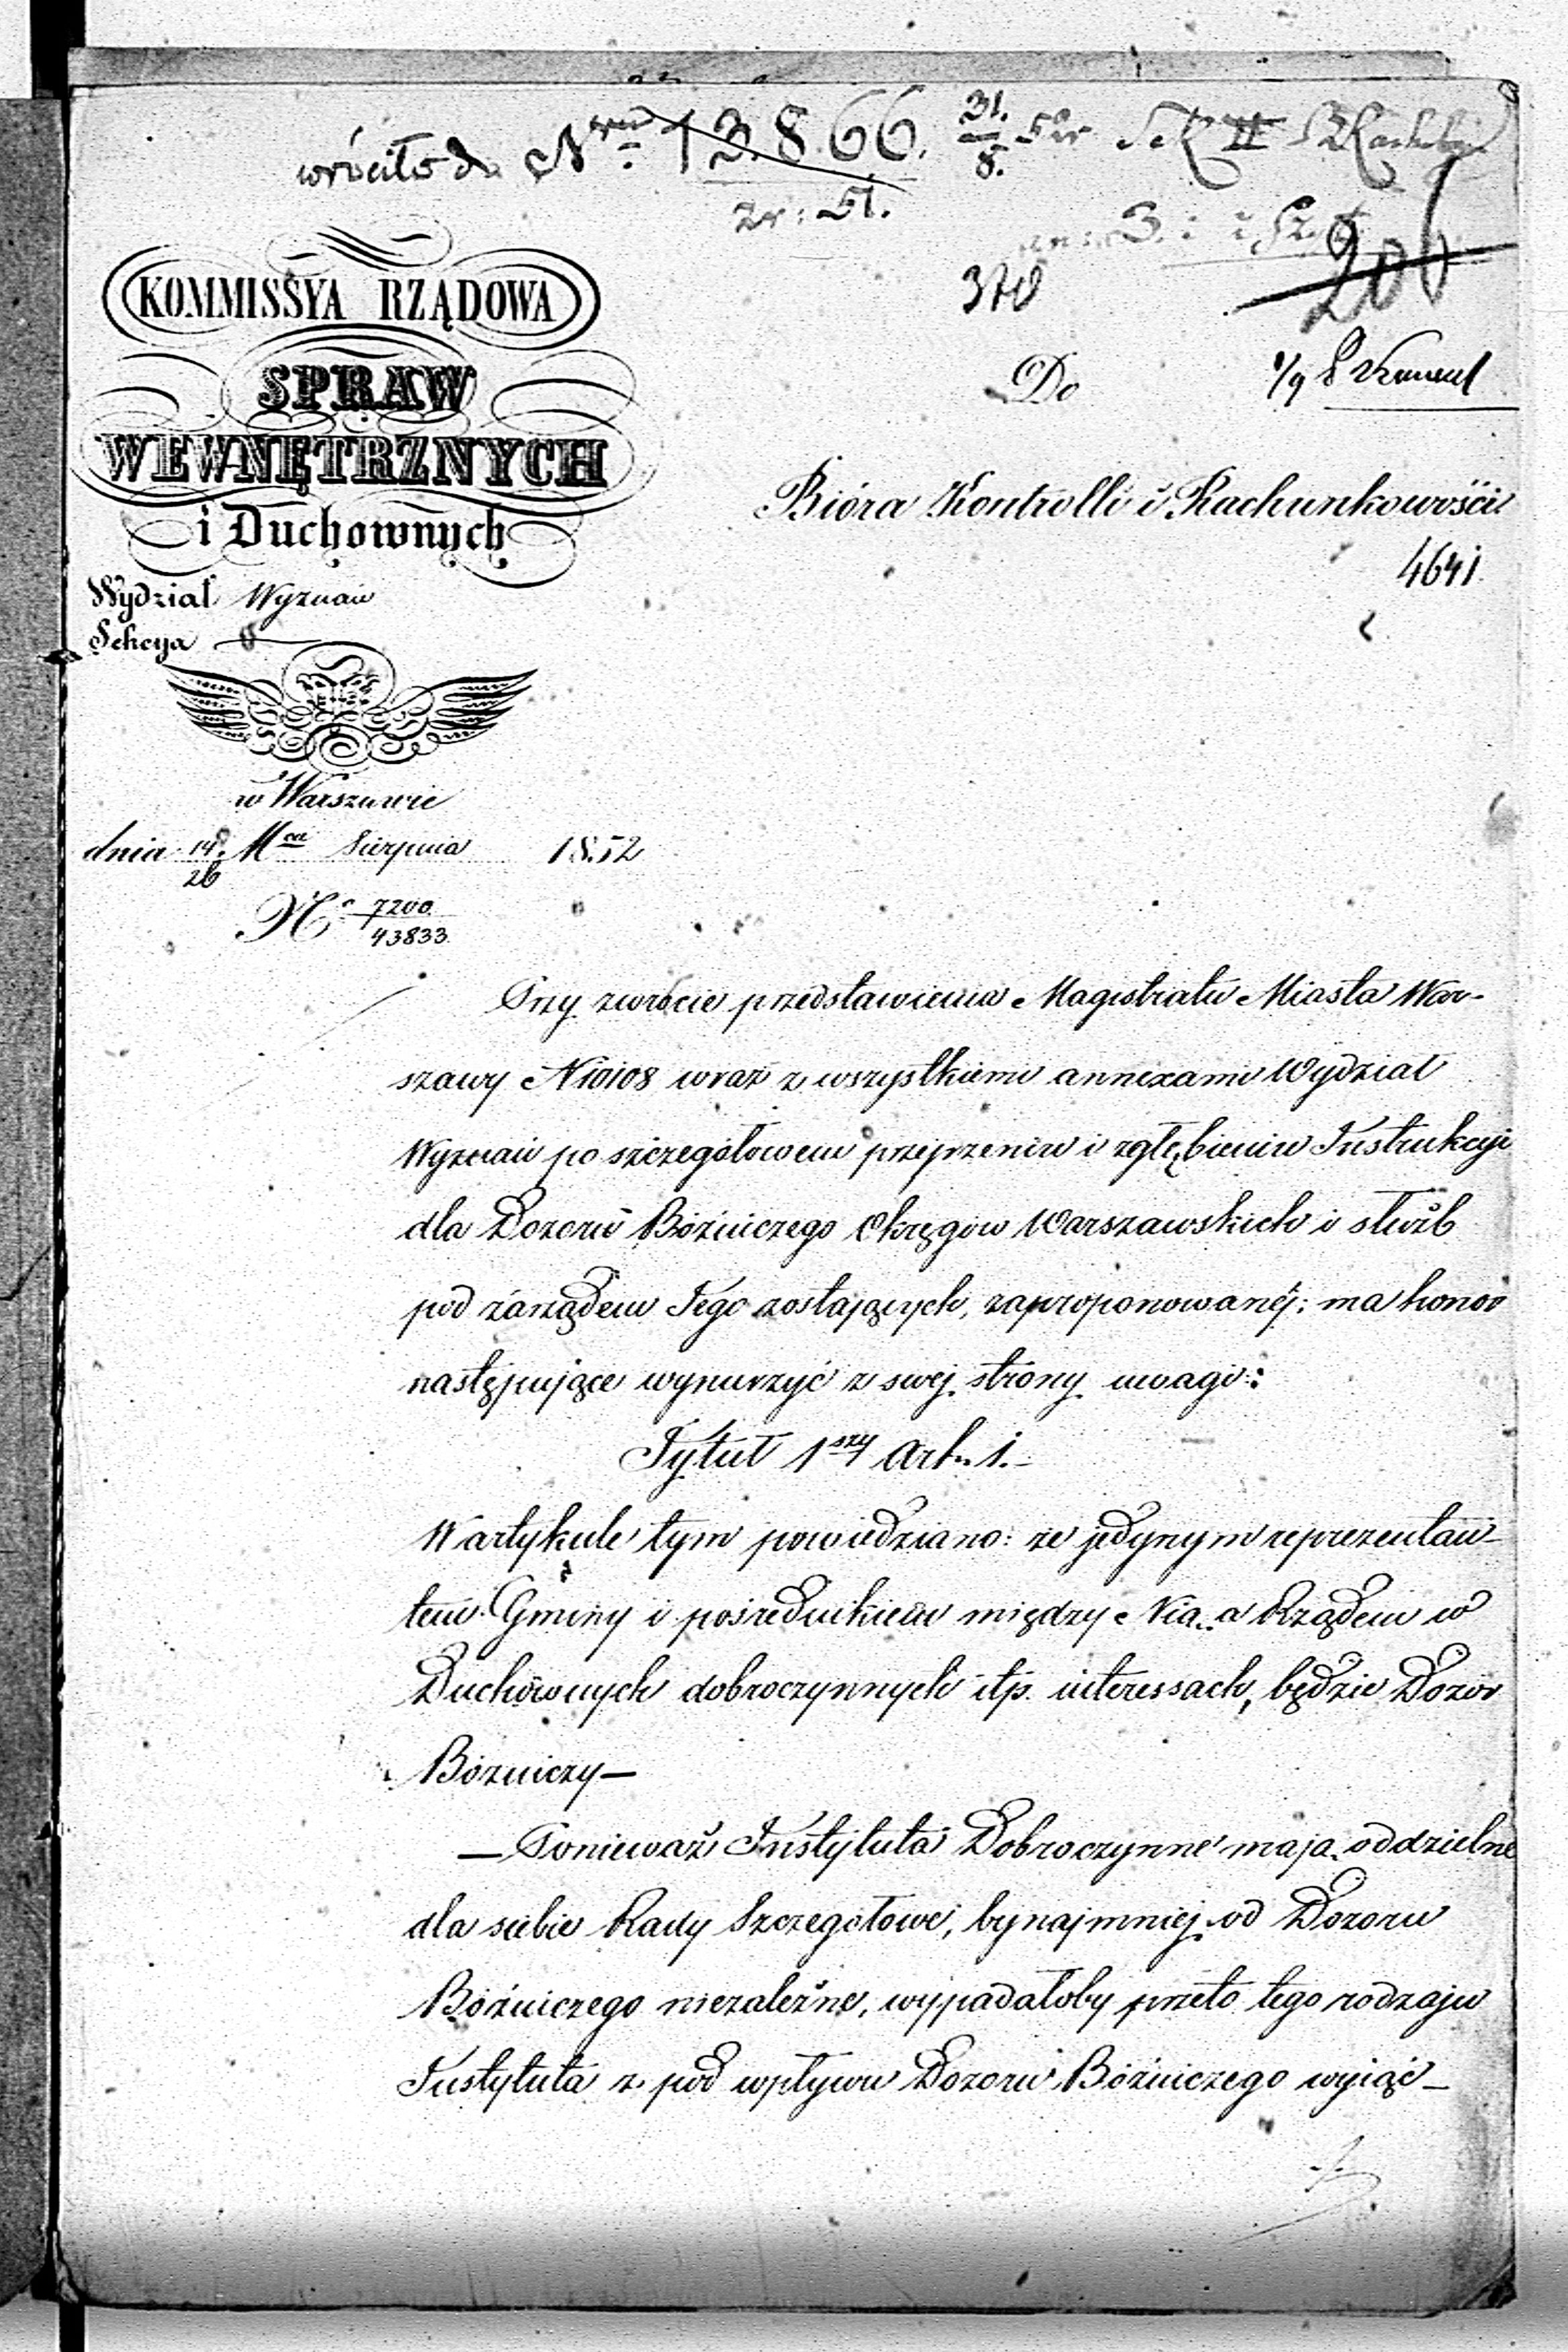 wróciło do Nru 13866. 31/8. 52r Sek II
zr: 51.
206
Do
Bióra Kontrolli i Rachunkowości
4641
KOMMISSYA RZĄDOWA
SPRAW
WEWNĘTRZNYCH
i Duchownych
Wydział Wyznań
Sekcya
w Warszawie
dnia 14/26 Mca Sierpnia 1852
No 7200/43833
Przy zwrocie przedstawienia Magistratu Miasta War-
szawy N 10108 wraz z wszystkiemi annexami Wydział
Wyznań po szczegółowem przejrzeniu i zgłębieniu Instrukcyi
dla Dozoru Bóźniczego Okręgów Warszawskich i służb
pod zarządem Jego zostających, zaproponowanéj: ma honor
następujące wynurzyć z swej strony uwagi:
Tytuł 1szy Art. 1.
W artykule tym powiedziano: że jedynym reprezentan-
tem Gminy i pośrednikiem między Nią a Rządem w
Duchownych dobroczynnych itp. interessach, będzie Dozór
Bóżniczy—
— Ponieważ Instytuta Dobroczynne mają oddzielne
dla siebie Rady Szczegółowe, bynajmniej od Dozoru
Bóźniczego niezależne, wypadałoby przeto tego rodzaju
Instytuta z pod wpływu Dozoru Bóźniczego wyjąć—